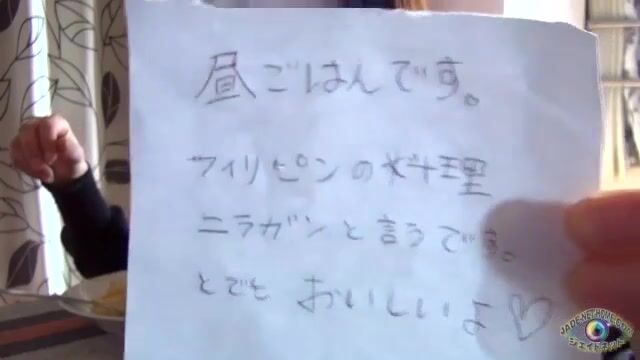 昼ごはんです。
フィリピンの料理
ニラガンと言うです。
とでも おいしいよ♡
JADENET.HOME.COM
ジェイドネット